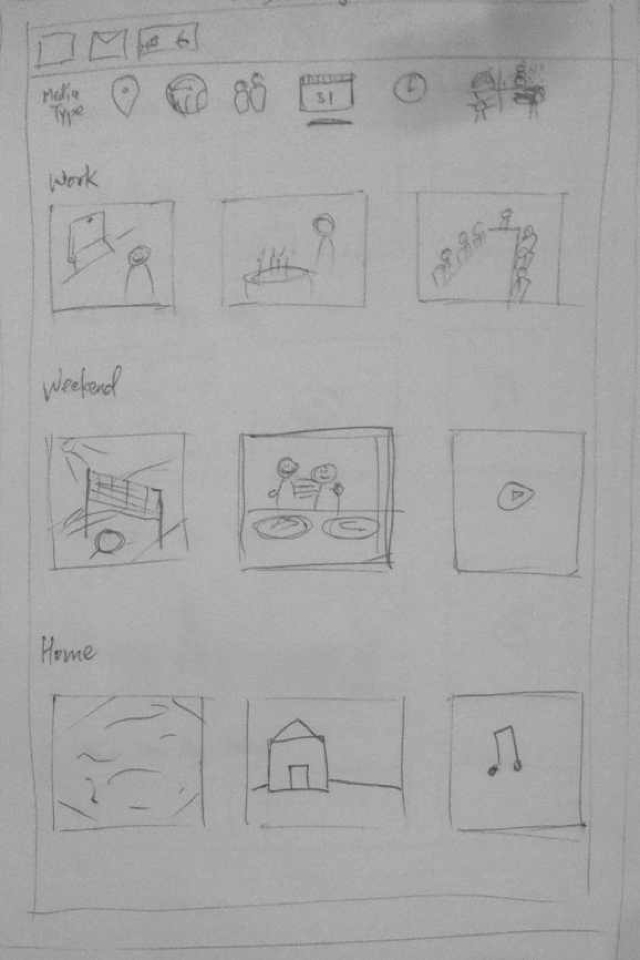 Media
Type
31
Work
Weekend
Home